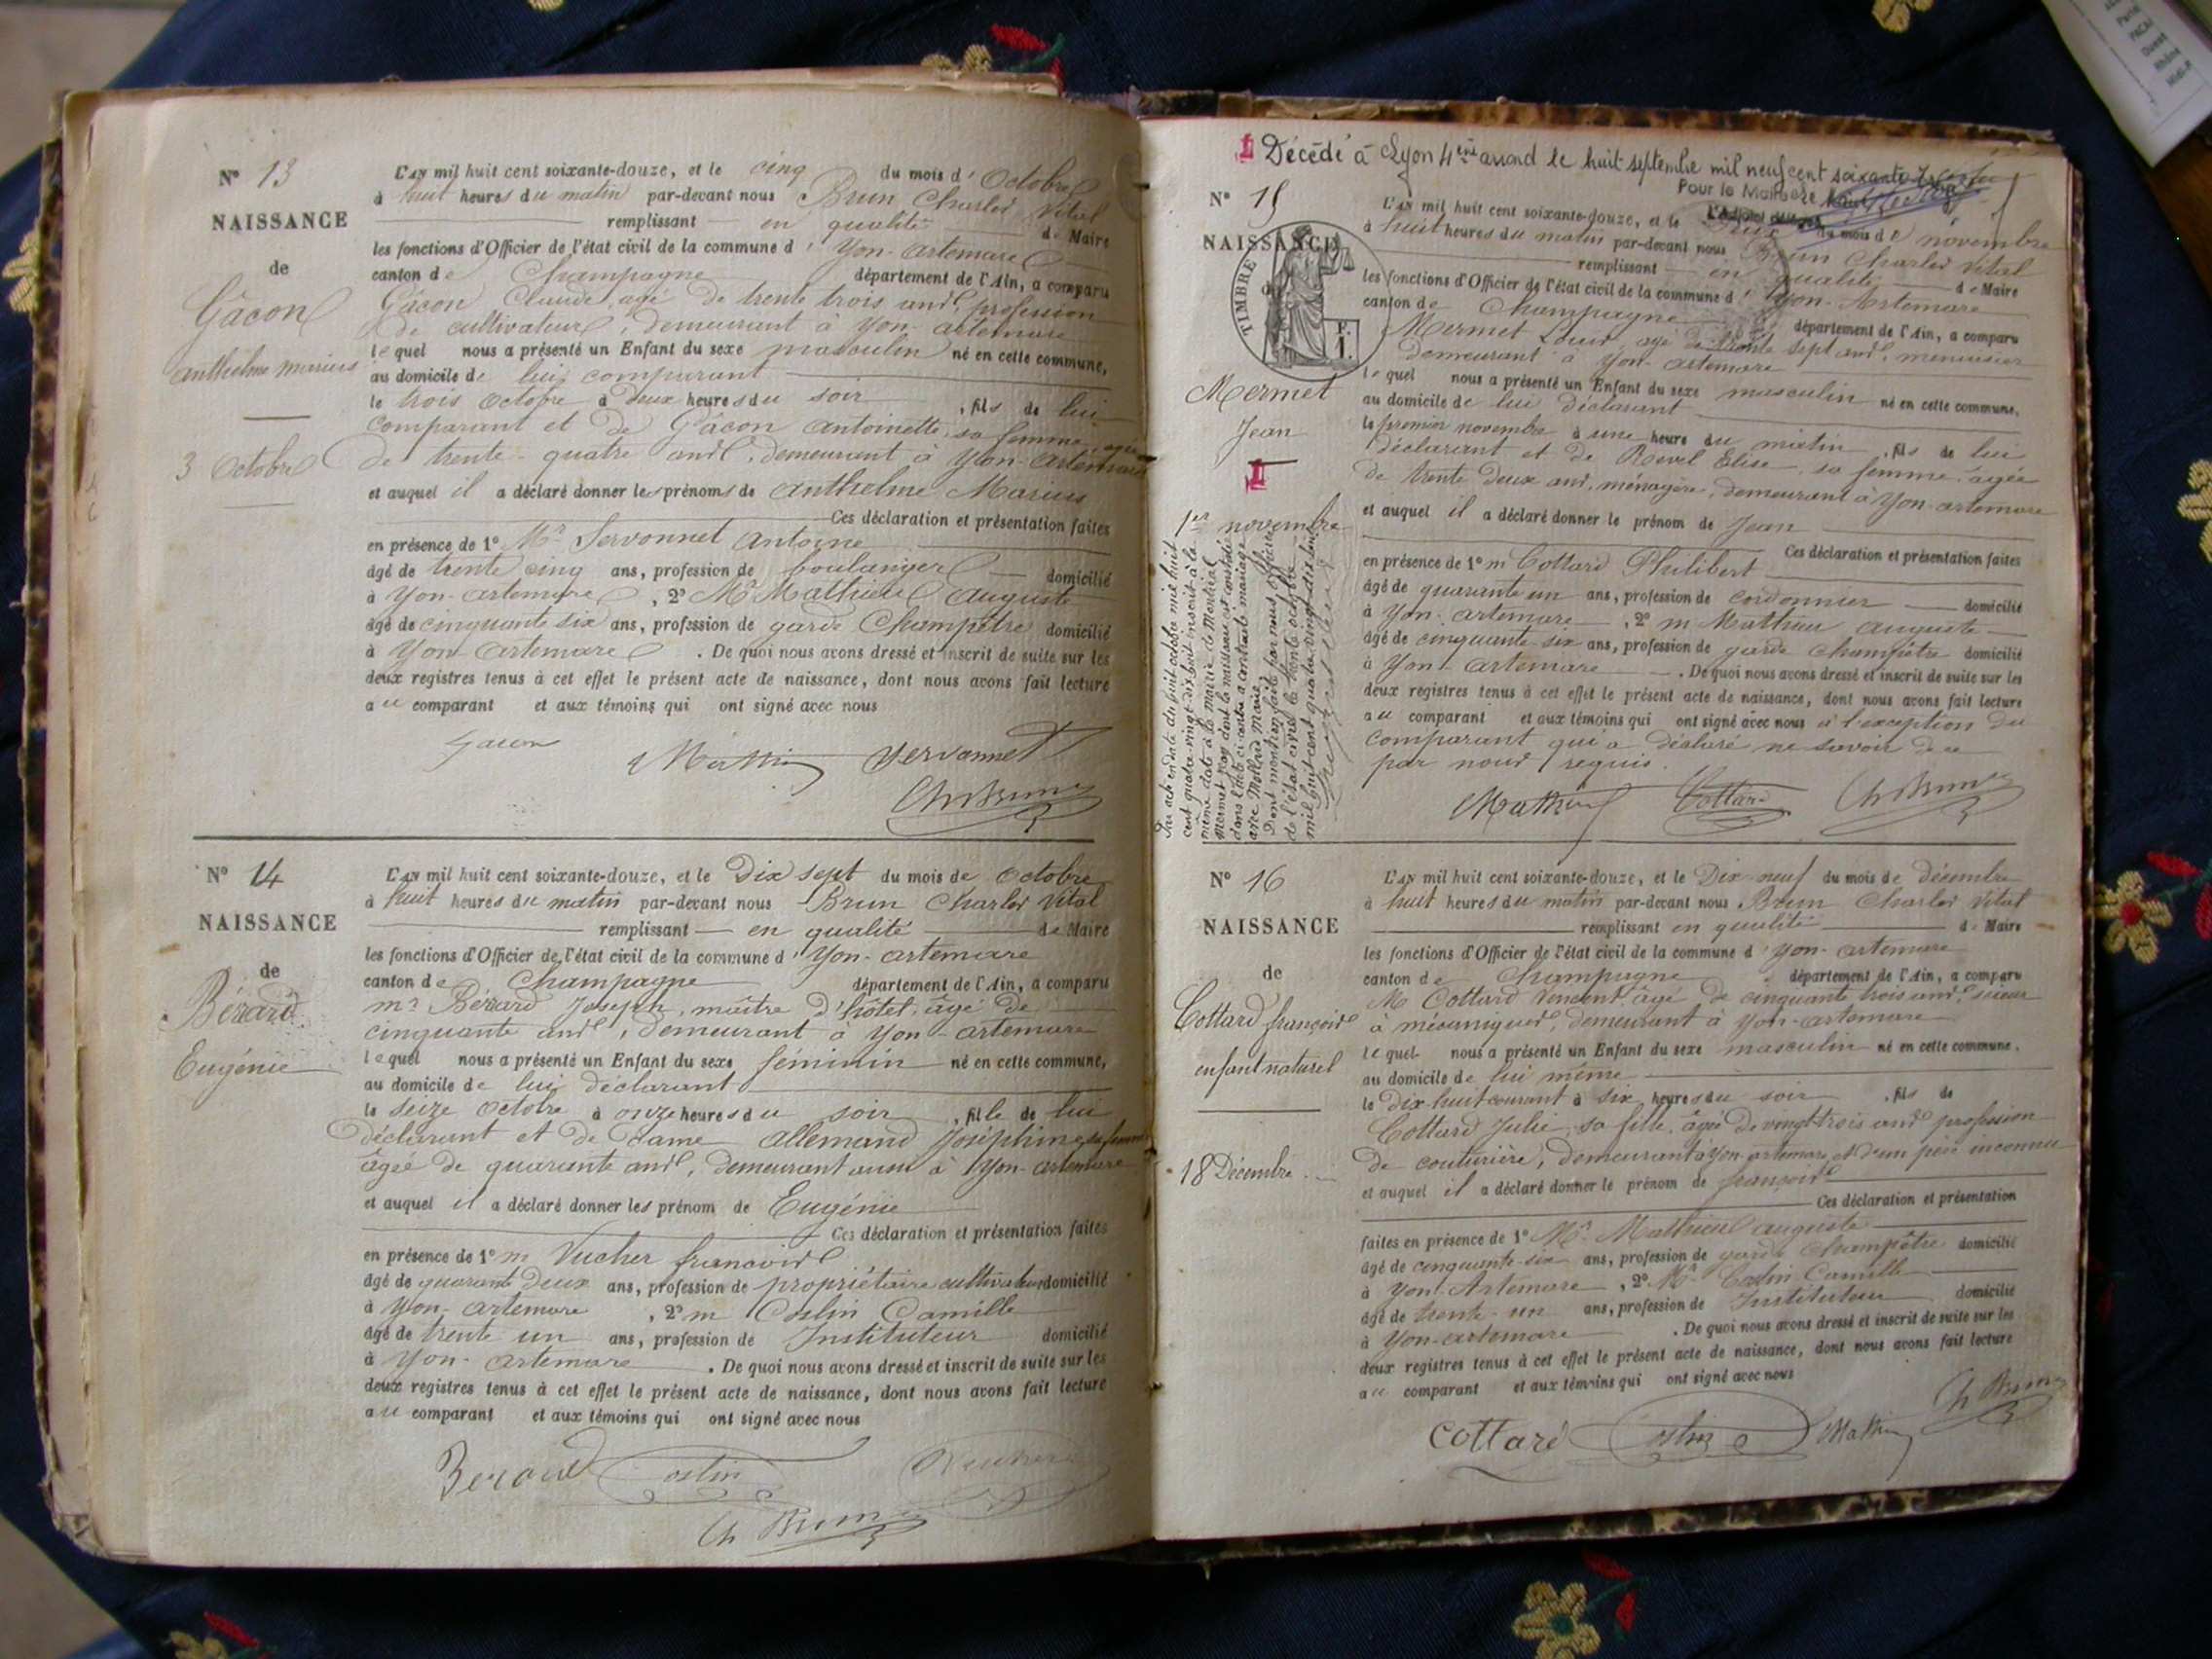 N° 13
NAISSANCE
de
Gâcon
anthelme marius
3 Octobre
L'an mil huit cent soixante-douze, et le cinq du mois d'Octobre
à huit heures du matin par-devant nous Brun Charles Vital
remplissant en qualité de Maire
les fonctions d'Officier de l'état civil de la commune d'Yon-artemare
canton de Champagne département de l'Ain, a comparu
Gâcon Claude, agé de trente trois ans, profession
de cultivateur, demeurant à Yon-artemare
lequel nous a présenté un Enfant du sexe masculin né en cette commune,
au domicile de lui comparant
le trois Octobre à deux heures du soir, fils de lui
comparant et de Gâcon Antoinette, sa femme, agée
de trente-quatre ans, demeurant à Yon-Artemare
et auquel il a déclaré donner les prénoms de Anthelme Marius
Ces déclaration et présentation faites
en présence de 1° Mr Servonnet Antoine
âgé de trente cinq ans, profession de boulanger domicilié
à Yon-artemare, 2° Mr Mathieu Auguste
âgé de cinquante six ans, profession de garde Champêtre domicilié
à Yon-Artemare. De quoi nous avons dressé et inscrit de suite sur les
deux registres tenus à cet effet le présent acte de naissance, dont nous avons fait lecture
au comparant et aux témoins qui ont signé avec nous
Gacon Mathieu Servonnet
Ch Brun
N° 14
NAISSANCE
de
Bérard
Eugénie
L'an mil huit cent soixante-douze, et le Dix sept du mois de Octobre
à huit heures du matin par-devant nous Brun Charles Vital
remplissant en qualité de Maire
les fonctions d'Officier de l'état civil de la commune d'Yon-artemare
canton de Champagne département de l'Ain, a comparu
mr Bérard Joseph, maître d'hôtel, âgé de
cinquante ans, demeurant à Yon-artemare
lequel nous a présenté un Enfant du sexe féminin né en cette commune,
au domicile de lui déclarant
le seize Octobre à onze heures du soir, fille de lui
déclarant et de Dame Allemand Joséphine, sa femme
âgée de quarante ans, demeurant aussi à Yon-artemare
et auquel il a déclaré donner les prénom de Eugénie
Ces déclaration et présentation faites
en présence de 1° m Vucher françois
âgé de quarante Deux ans, profession de propriétaire cultivateur domicilié
à Yon-artemare, 2° m Coslin Camille
âgé de trente un ans, profession de Instituteur domicilié
à Yon-artemare. De quoi nous avons dressé et inscrit de suite sur les
deux registres tenus à cet effet le présent acte de naissance, dont nous avons fait lecture
au comparant et aux témoins qui ont signé avec nous
Berard Coslin Vucher
Ch Brun
I Décédé à Lyon 4ème arrond le huit septembre mil neuf cent soixante
Pour le Maire
N° 15
NAISSANCE
TIMBRE
Mermet
Jean
I
1er novembre
Par acte en date du huit octobre mil huit
cent quatre vingt dix huit inscrit à la
même date à la Mairie de
Mermet Jean dont la naissance est constatée
dans l'acte ci-contre a contracté mariage
avec Mollard Marie
Dont mention faite par nous officier
de l'état civil le trente octobre
mil huit cent quatre vingt dix huit
L'an mil huit cent soixante-douze, et le Deux du mois de novembre
à huit heures du matin par-devant nous Brun Charles Vital
remplissant en qualité de Maire
les fonctions d'Officier de l'état civil de la commune d'Yon-Artemare
canton de Champagne département de l'Ain, a comparu
Mermet Louis, agé de trente sept ans, menuisier
demeurant à Yon-artemare
lequel nous a présenté un Enfant du sexe masculin né en cette commune,
au domicile de lui déclarant
le premier novembre à une heure du matin, fils de lui
déclarant et de Revel Elise, sa femme, agée
de trente deux ans, ménagère, demeurant à Yon-artemare
et auquel il a déclaré donner le prénom de Jean
Ces déclaration et présentation faites
en présence de 1° m Cottard Philibert
âgé de quarante un ans, profession de cordonnier domicilié
à Yon-artemare, 2° m Mathieu Auguste
âgé de cinquante six ans, profession de garde champêtre domicilié
à Yon-Artemare. De quoi nous avons dressé et inscrit de suite sur les
deux registres tenus à cet effet le présent acte de naissance, dont nous avons fait lecture
au comparant et aux témoins qui ont signé avec nous à l'exception du
comparant qui a déclaré ne savoir de ce
par nous requis.
Mathieu Cottard Ch Brun
N° 16
NAISSANCE
de
Cottard françois
enfant naturel
18 Décembre
L'an mil huit cent soixante-douze, et le Dix-neuf du mois de décembre
à huit heures du matin par-devant nous Brun Charles Vital
remplissant en qualité de Maire
les fonctions d'Officier de l'état civil de la commune d'Yon-artemare
canton de Champagne département de l'Ain, a comparu
M Cottard Vincent âgé de cinquante trois ans, scieur
à mécaniques, demeurant à Yon-artemare
lequel nous a présenté un Enfant du sexe masculin né en cette commune.
au domicile de lui même
le Dix-huit courant à six heures du soir, fils de
Cottard Julie, sa fille, âgée de vingt trois ans profession
de couturière, demeurant à Yon-artemare et d'un père inconnu
et auquel il a déclaré donner le prénom de françois
Ces déclaration et présentation
faites en présence de 1° Mr Mathieu Auguste
âgé de cinquante-six ans, profession de garde Champêtre domicilié
à Yon-Artemare, 2° Mr Coslin Camille
âgé de trente-un ans, profession de Instituteur domicilié
à Yon-artemare. De quoi nous avons dressé et inscrit de suite sur les
deux registres tenus à cet effet le présent acte de naissance, dont nous avons fait lecture
au comparant et aux témoins qui ont signé avec nous
Cottard Coslin Mathieu Ch Brun